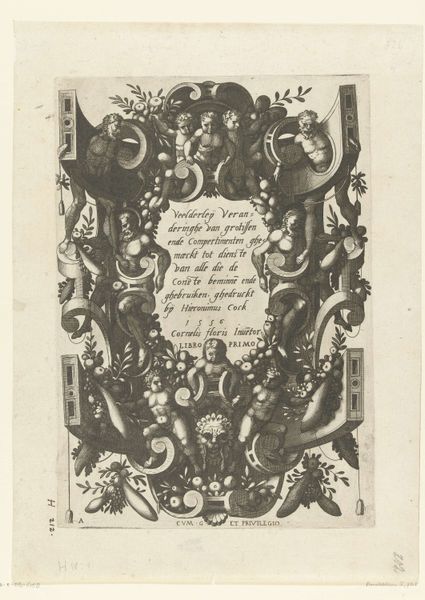 Veelderleÿ Veran=
deringhe van grotissen
ende Compertimenten ghe
maeckt tot dienste
van alle die de
Conste beminnē ende
ghebruiken. ghedruckt
bÿ Hieronimus Cock
1556
Cornelis floris Invētor
LIBRO PRIMO
A
CVM · G ET PRIVILEGIO
H 212.